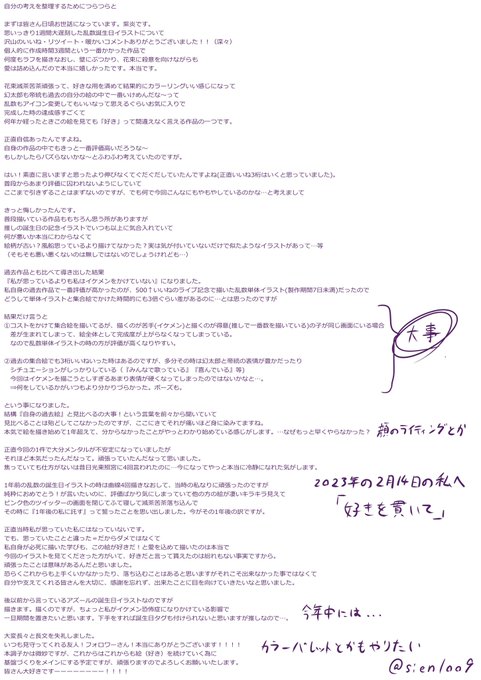 自分の考えを整理するためにつらつらと
まずは皆さん日頃お世話になっています。紫炎です。
思いっきり1週間大遅刻した乱数誕生日イラストについて
沢山のいいね・リツイート・暖かいコメントありがとうございました！！（深々）
個人的に作成時間3週間という一番かかった作品で
何度もラフを描きなおし、壁にぶつかり、花束に殺意を向けながらも
愛は詰め込んだので本当に嬉しかったです。本当です。
花束滅茶苦茶頑張って、好きな用を済めて結果的にカラーリングいい感じになって
幻太郎も帝統も過去の自分の絵の中で一番いけめんだな～って
乱数もアイコン変更してもいいなって思えるぐらいお気に入りで
完成した時の達成感すごくて
何年か経ったときこの絵を見ても「好き」って間違えなく言える作品の一つです。
正直自信あったんですよね。
自身の作品の中でもきっと一番評価高いだろうな～
もしかしたらバズらないかな～とふわふわ考えていたのですが。
はい！素直に言いますと思ったより伸びなくてぐだぐだしていたんですよね(正直いいね3桁はいくと思っていました)。
普段からあまり評価に囚われないようにしていて
ここまで引きずることはまずないのですが、でも何で今回こんなにもやもやしているのかな…と考えまして
きっと悔しかったんです。
普段描いている作品ももちろん思う所がありますが
推しの誕生日の記念イラストでいつも以上に気合入れていて
何が悪いか本当にわからなくて
絵柄が古い？風船思っているより描けてなかった？実は気が付いていないだけで似たようなイラストがあって…等
（そもそも悪い悪くないのは無しではないのでしょうけれども…）
過去作品とも比べて導き出した結果
『私が思っているよりも私はイケメンをかけていない』になりました。
私自身の過去作品で一番評価が高かったのが、500↑いいねのライブ記念で描いた乱数単体イラスト(製作期間7日未満)だったので
どうして単体イラストと集合絵でかけた時間的にも3倍ぐらい差があるのに…とは思ったのですが
結果だけ言うと
①コストをかけて集合絵を描いてるが、描くのが苦手(イケメン)と描くのが得意(推しで一番数を描いている)の子が同じ画面にいる場合
差が生まれてしまって、絵全体として完成度が上がらなくなってしまっている。
なので乱数単体イラストの時の方が評価が高くなりやすい。
②過去の集合絵でも3桁いいねいった時はあるのですが、多分その時は幻太郎と帝統の表情が豊かだったり
シチュエーションがしっかりしている（『みんなで歌っている』『喜んでる』等）
今回はイケメンを描こうとしすぎるあまり表情が硬くなってしまったのではないかなと…。
⇒何をしているかがいつもより分かりづらかった。ポーズも。
大事
という事になりました。
結構『自身の過去絵』と見比べるの大事！という言葉を前々から聞いていて
見比べることは殆どしてこなかったのですが、ここにきてそれが痛いほど身に染みますね。
本気で絵を描き始めて1年超えて、分からなかったことがやっとわかり始めている感じがします。…なぜもっと早くやらなかった？
顔のライティングとか
正直今回の1件で大分メンタルが不安定になっていましたが
それほど本気だったんだなって。頑張っていたんだなって思いました。
焦っていても仕方がないは昔日光東照宮に4回言われたのに…今になってやっと本当に冷静になれた気がします。
1年前の乱数の誕生日イラストの時は曲線4回描きなおして、当時の私なりに頑張ったのですが
純粋におめでとう！が言いたいのに、評価ばかり気にしまっていて他の方の絵が凄いキラキラ見えて
ピンク色のツイッターの画面を閉じてふて寝して滅茶苦茶落ち込んで
その時に『1年後の私に託す』って誓ったことを思い出しました。今がその1年後の訳ですが。
2023年の2月14日の私へ
「好きを貫いて」
正直当時私が思っていた私にはなっていないです。
でも、思っていたことと違った＝だからダメではなくて
私自身が必死に描いた学びも、この絵が好きだ！と愛を込めて描いたのは本当で
今回のイラストを見てくださった方がいて、好きだと言って貰えたのは紛れもない事実ですから。
頑張ったことは意味があるんだと思いました。
恐らくこれからも上手くいかなかったり、落ち込むことはあると思いますがそれこそ出来なかった事ではなくて
自分や支えてくれる皆さんを大切に、感謝を忘れず、出来たことに目を向けていきたいなと思いました。
後以前から言っているアズールの誕生日イラストなのですが
描きます。描くのですが、ちょっと私がイケメン恐怖症になりかけている影響で
一旦期間を置きたいと思います。下手をすれば誕生日タグも付けられないと思いますが推しなので…。
今年中には…
大変長々と長文を失礼しました。
いつも見守ってくれる友人！フォロワーさん！本当にありがとうございます！！！！
本調子かは微妙ですが、これからはこれからも絵（好き）を続けていく為に
基盤づくりをメインにする予定ですが、頑張りますのでよろしくお願いいたします。
皆さん大好きですーーーーーーー！！！！
カラーパレットとかもやりたい
@sien1009